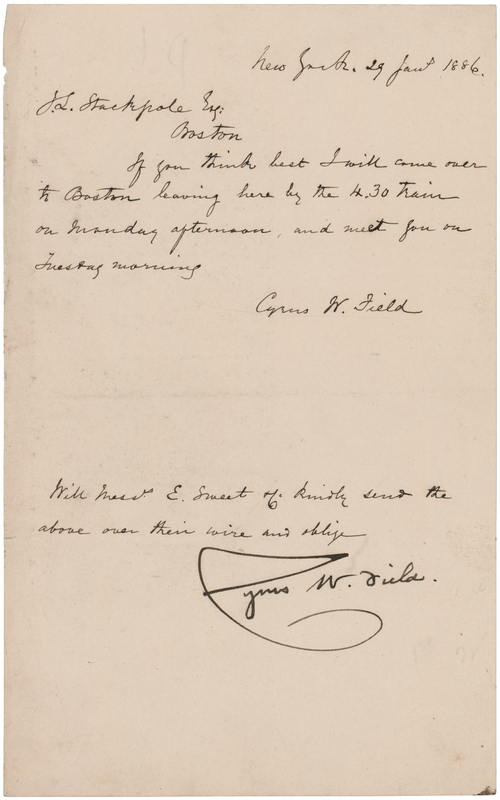 New York. 29 Jany 1886.
J. L. Stackpole Esq:
Boston
If you think best I will come over
to Boston leaving here by the 4.30 train
on Monday afternoon, and meet you on
Tuesday morning
Cyrus W. Field
Will Messrs E. Sweet & Co kindly send the
above over their wire and oblige
Cyrus W. Field.